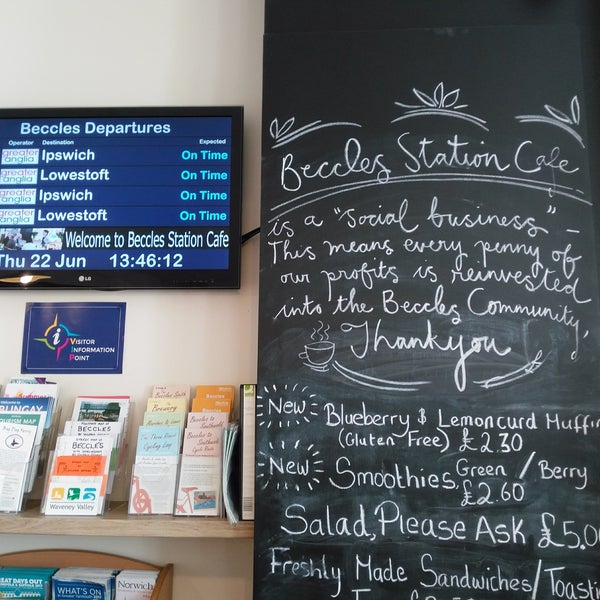 Beccles Departures
Operator Destination Expected
greater anglia Ipswich On Time
greater anglia Lowestoft On Time
greater anglia Ipswich On Time
greater anglia Lowestoft On Time
Welcome to Beccles Station Cafe
Thu 22 Jun 13:46:12
LG
i VISITOR
INFORMATION
POINT
BUNGAY
BECCLES
BECCLES
Waveney Valley
Brewery
Beccles to
Southwold
GREAT DAYS OUT
WHAT'S ON
Norwich
Beccles Station Cafe
is a "social business" –
This means every penny of
our profits is reinvested
into the Beccles Community,
Thankyou
New Blueberry & Lemoncurd Muffin
(Gluten Free) £2.30
New Smoothies, Green / Berry
£2.60
Salad, Please Ask £5.0
Freshly Made Sandwiches/Toastie